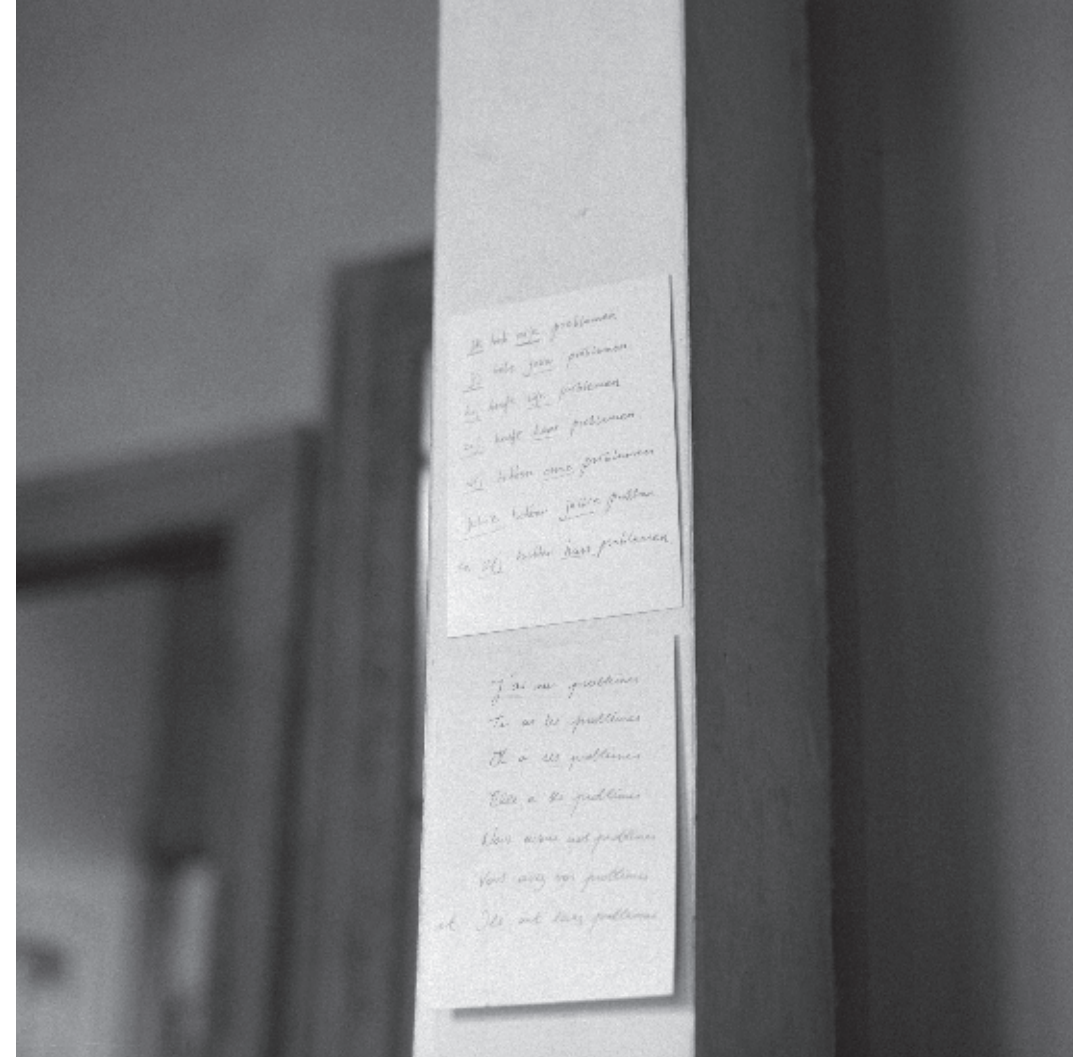 Ik heb mijn problemen
Jij hebt jouw problemen
hij heeft zijn problemen
zij heeft haar problemen
wij hebben onze problemen
jullie hebben jullie problemen
en zij hebben hun problemen
J'ai mes problèmes
Tu as tes problèmes
Il a ses problèmes
Elle a ses problèmes
Nous avons nos problèmes
Vous avez vos problèmes
et Ils ont leurs problèmes